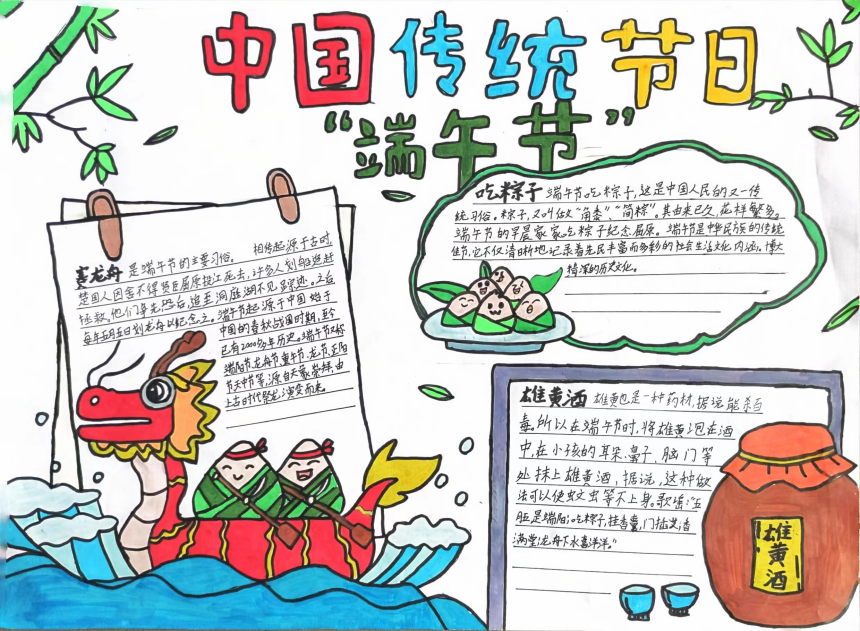 中国传统节日
“端午节”
赛龙舟 是端午节的主要习俗。 相传起源于古时
楚国人因舍不得贤臣屈原投江死去，许多人划船追赶
拯救。他们争先恐后，追至洞庭湖不见踪迹。之后
每年五月五日划龙舟以纪念之。端午节起源于中国始于
中国的春秋战国时期，至今
已有2000多年历史。端午节又称
端阳节，龙舟节，重午节，龙节，正阳
节天中节等，源自天象崇拜，由
上古时代祭龙演变而来。
吃粽子 端午节吃粽子，这是中国人民的又一传
统习俗。粽子，又叫做“角黍”、“筒粽”。其由来已久，花样繁多。
端午节的早晨家家吃粽子纪念屈原。端午节是中华民族的传统
佳节，它不仅清晰地记录着先民丰富而多彩的社会生活文化内涵，博大
精深的历史文化。
雄黄酒 雄黄也是一种药材，据说能杀百
毒，所以在端午节时，将雄黄泡在酒
中，在小孩的耳朵、鼻子、脑门等
处抹上雄黄酒，据说，这种做
法可以使蚊虫等不上身。歌谣：“五
是端阳；吃粽子，挂香囊，门插艾，香
满堂；龙舟下水喜洋洋。”
雄黄酒